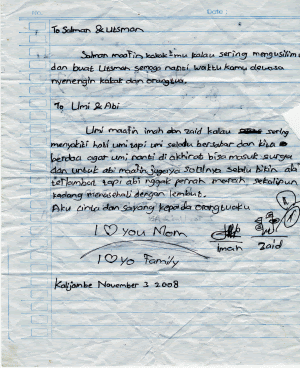 To Salman & Utsman
Salman maafin kakak²mu kalau sering mengusilim
dan buat Utsman semoga nanti waktu kamu dewasa
nyenengin kakak dan orangtua.
To Umi & Abi
Umi maafin imah dan zaid kalau sering
menyakiti hati umi tapi umi selalu bersabar dan bisa
berdoa agar umi nanti di akhirat bisa masuk surga
dan untuk abi maafin juga ya soalnya selalu bikin abi
terlambat tapi abi nggak pernah marah sekalipun
kadang menasehati dengan lembut.
Aku cinta dan sayang kepada orangtuaku
I ♡ you Mom
Imah Zaid
I ♡ yo Family
November 3 2008